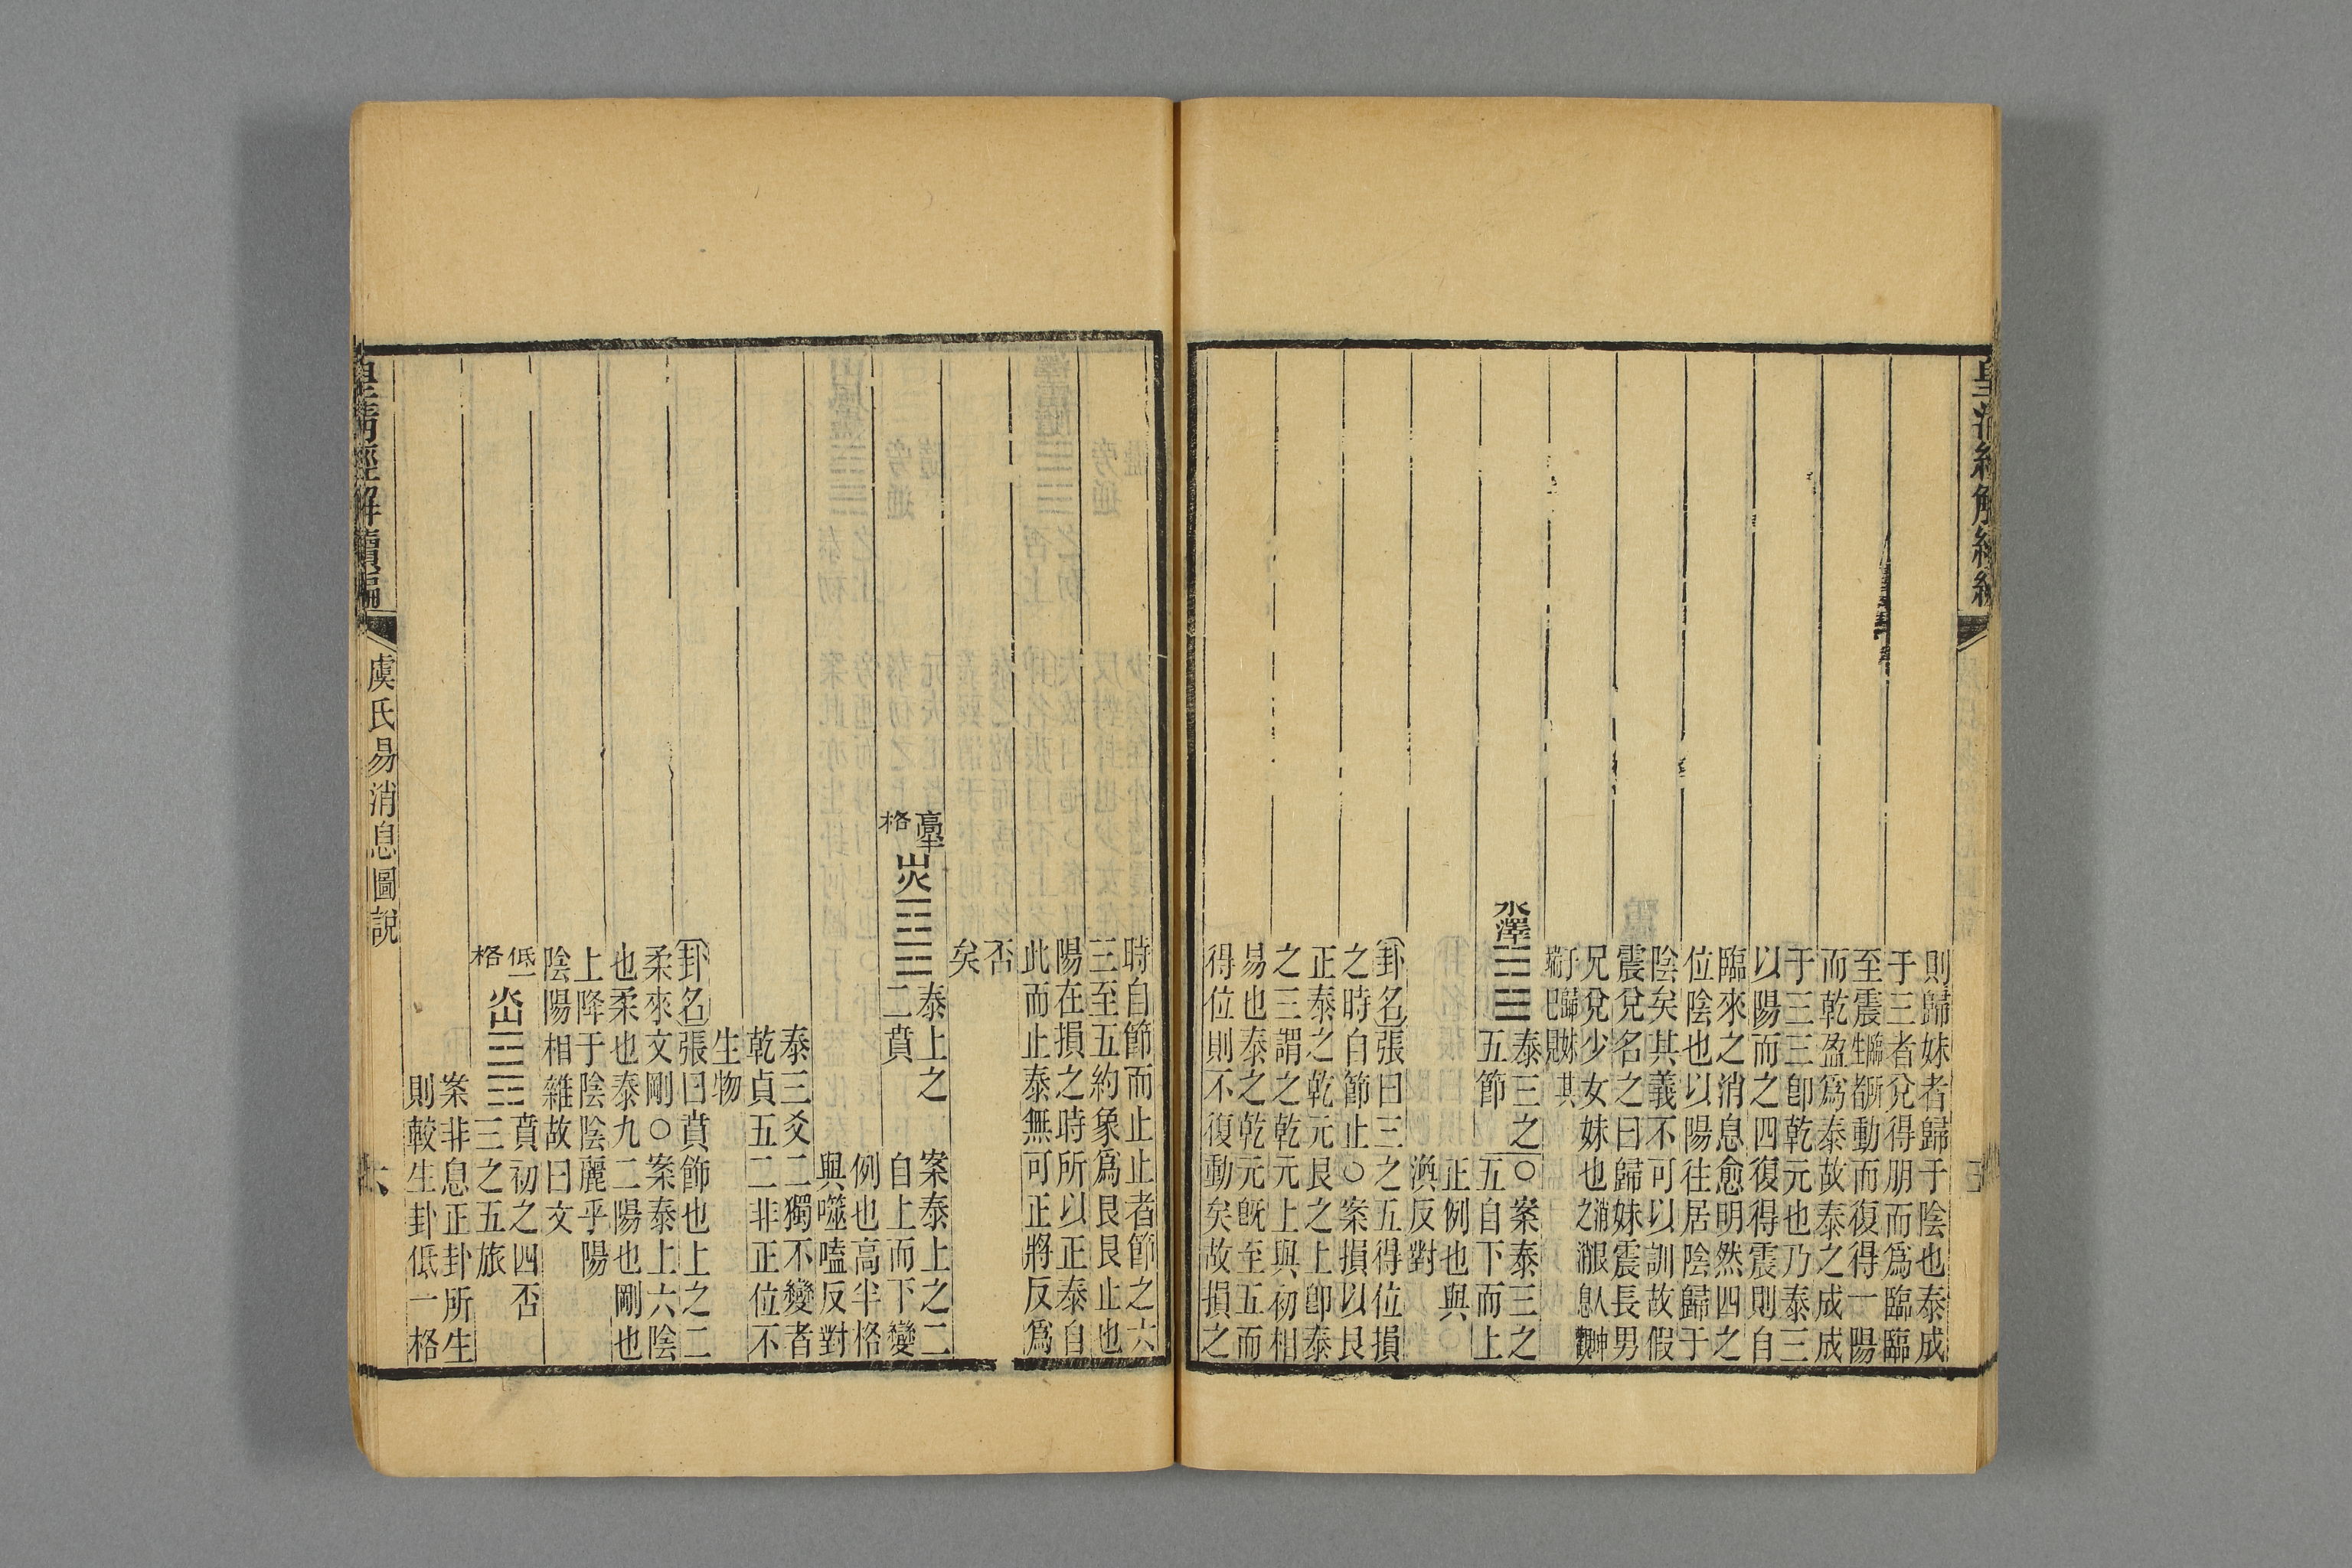 則歸妹者歸于陰也泰成
于三者兌得朋而爲臨臨
至震生動而復得一陽
而乾盈爲泰故泰之成成
于三三卽乾元也乃泰三
以陽而之四復得震則自
臨來之消息愈明然四之
位陰也以陽往居陰歸于
陰矣其義不可以訓故假
震兌名之曰歸妹震長男
兄兌少女妹也
水澤
泰三之
五節
○案泰三之
五自下而上
正例也與
渙反對
卦名張曰三之五得位損
之時自節止○案損以艮
正泰之乾元艮之上卽泰
之三謂之乾元上與初相
易也泰之乾元旣至五而
得位則不復動矣故損之
時自節而止止者節之六
三至五約象爲艮艮止也
陽在損之時所以正泰自
此而止泰無可正將反爲
否
矣
高半
格
山火
泰上之
二賁
案泰上之二
自上而下變
例也高半格
與噬嗑反對
泰三爻二獨不變者
乾貞五二非正位不
生物
卦名張曰賁飾也上之二
柔來文剛○案泰上六陰
也柔也泰九二陽也剛也
上降于陰陰麗乎陽
陰陽相雜故曰文
低一
格
火山
賁初之四否
三之五旅
案非息正卦所生
則較生卦低一格
皇淸經解續編
虞氏易消息圖說
六